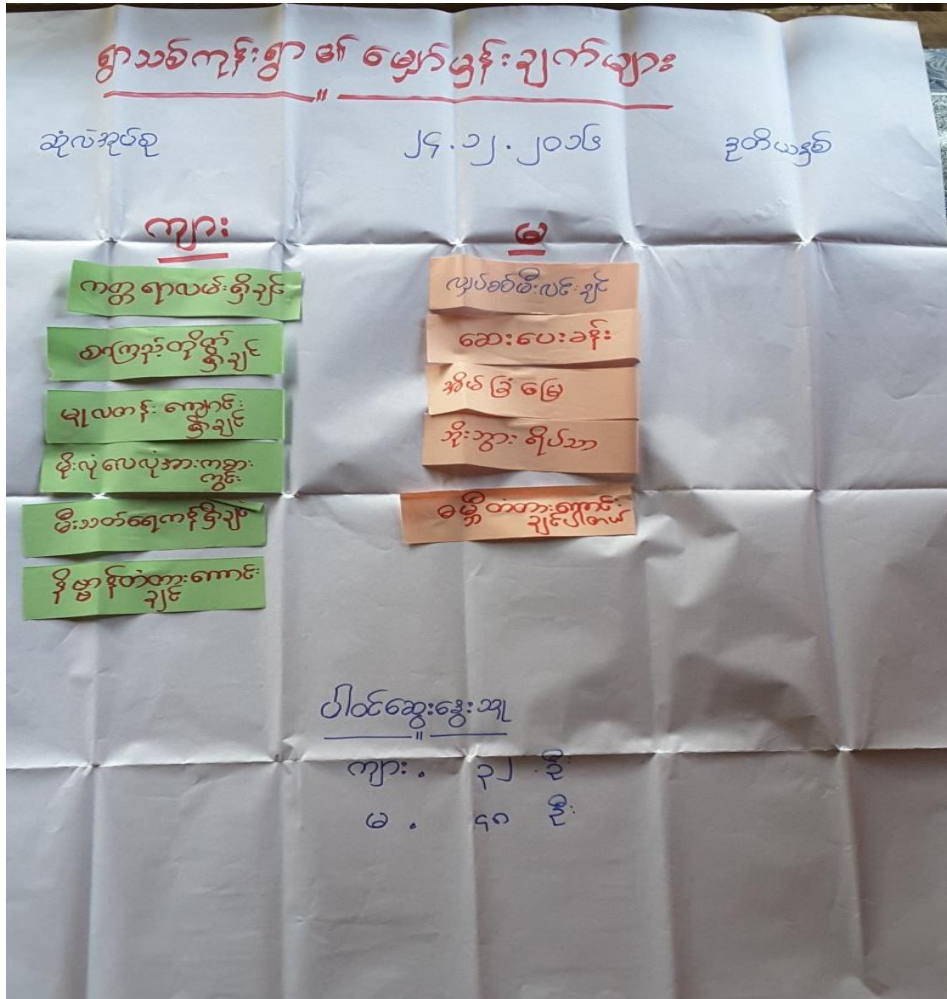 ရွာသစ်ကုန်းရွာ ၏ မျှော်မှန်းချက်များ
ဆုံလဲအုပ်စု ၂၄.၁၂.၂၀၁၆ ဒုတိယနှစ်
ကျား
ကတ္တရာလမ်းရှိချင်
စာကြည့်တိုက်
ရှိချင်
မူလတန်းကျောင်း
ရှိချင်
မိုးလုံလေလုံအားကစား
ကွင်း
မီးသတ်ရေကန်ရှိချင်
နိဗ္ဗာန်တံတားကောင်း
ချင်
မ
လျှပ်စစ်မီးလင်းချင်
ဆေးပေးခန်း
အိမ်ခြံမြေ
ဘိုးဘွားရိပ်သာ
ဓမ္မီတံတားကောင်း
ချင်ပါတယ်
ပါဝင်ဆွေးနွေးသူ
ကျား . ၃၂ ဦး
မ . ၄၈ ဦး